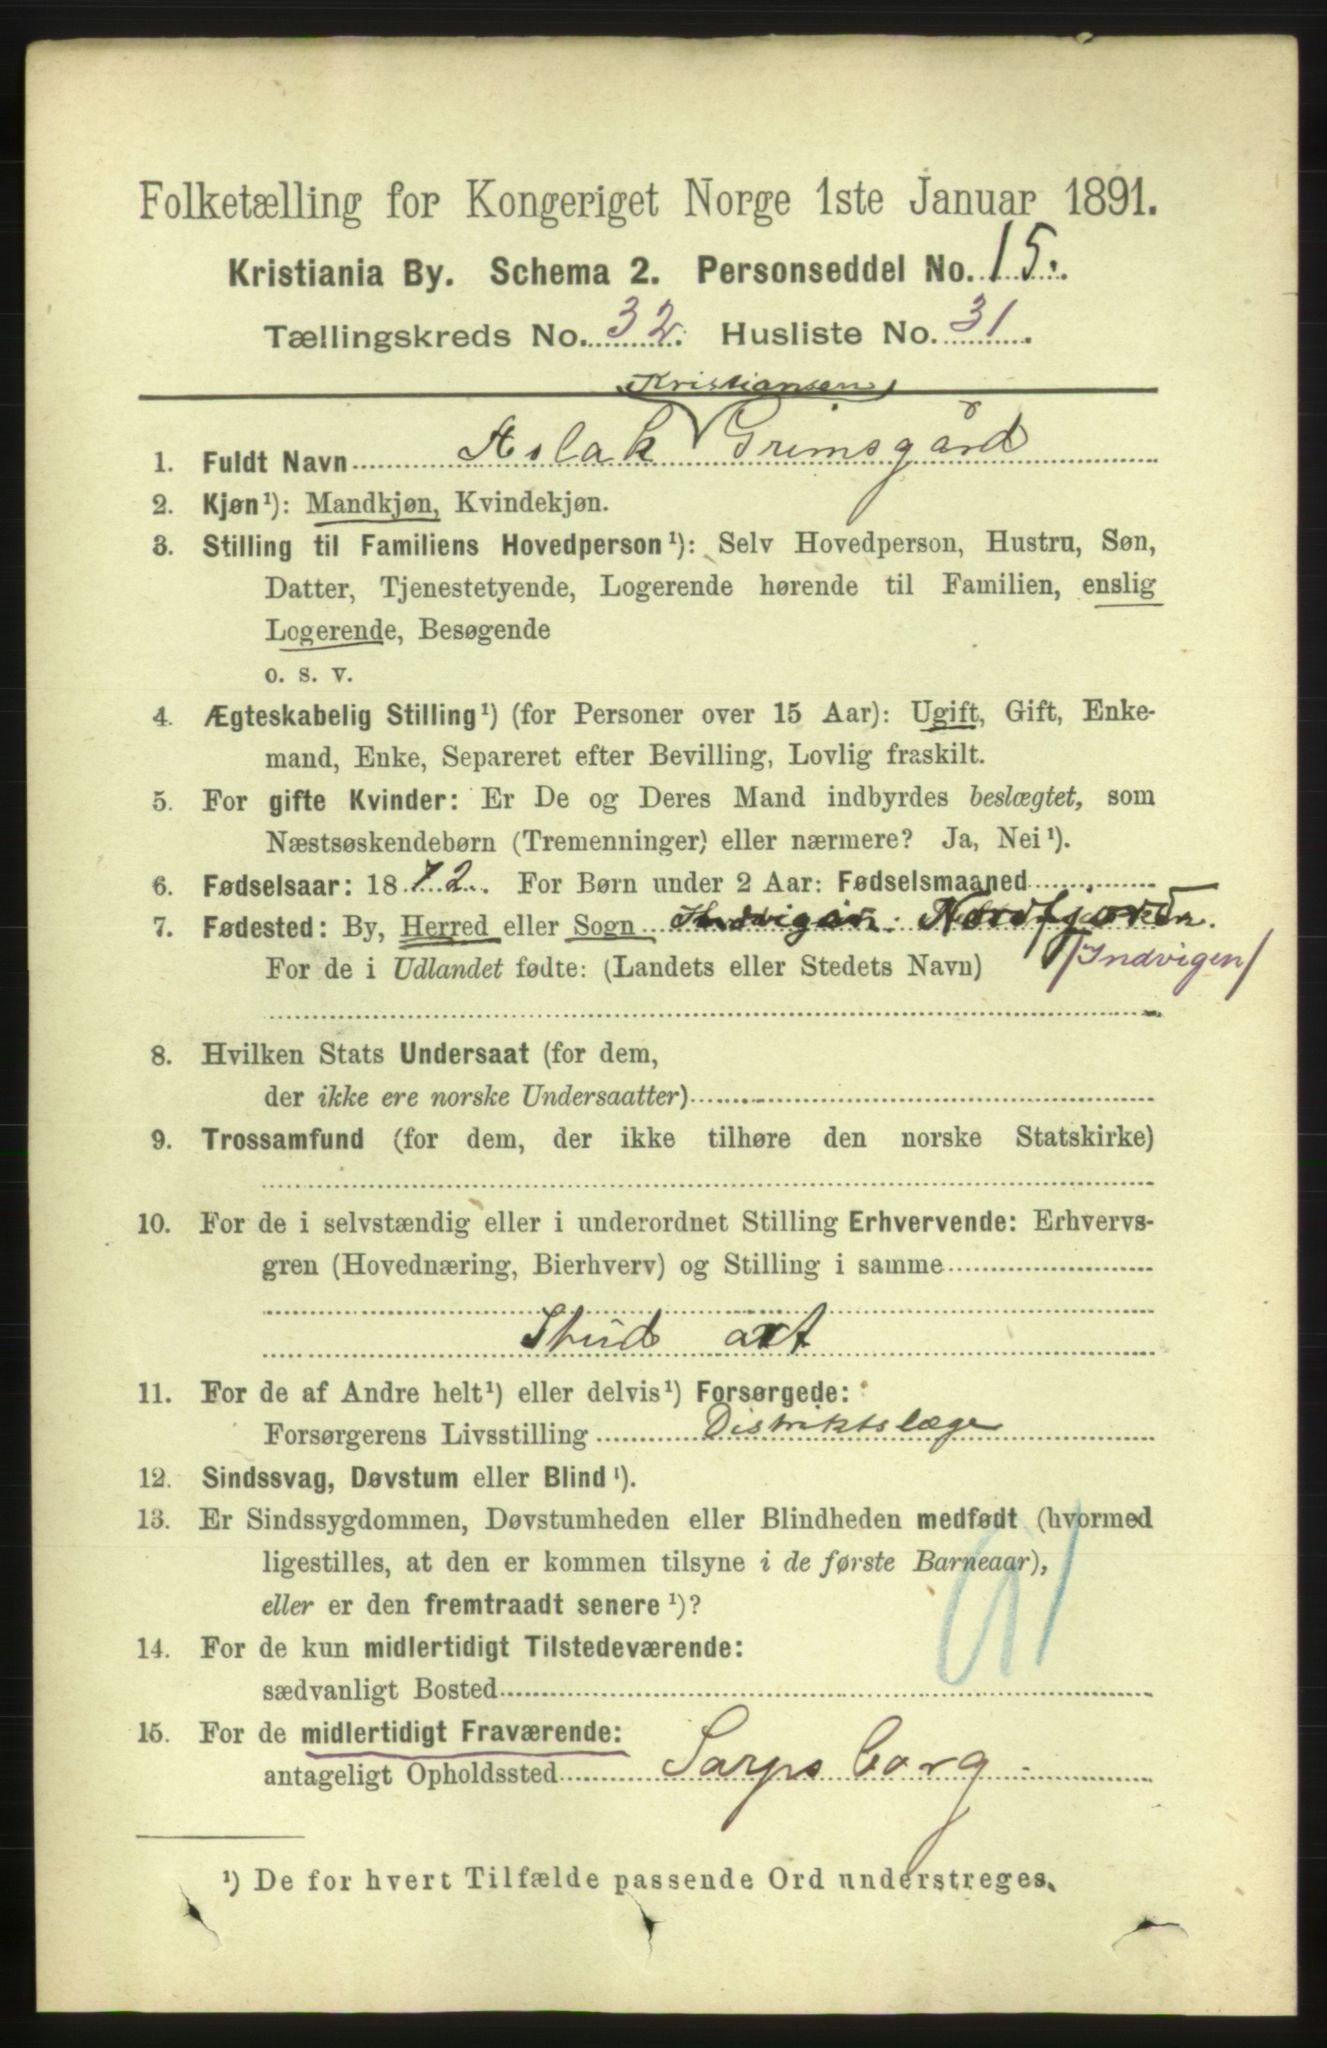 Folketælling for Kongeriget Norge 1ste Januar 1891.
Kristiania By. Schema 2. Personseddel No. 15.
Tællingskreds No. 32. Husliste No. 31.
Kristiansen
1. Fuldt Navn Aslak Grimsgård
2. Kjøn¹): Mandkjøn, Kvindekjøn.
3. Stilling til Familiens Hovedperson¹): Selv Hovedperson, Hustru, Søn,
Datter, Tjenestetyende, Logerende hørende til Familien, enslig
Logerende, Besøgende
o. s. v.
4. Ægteskabelig Stilling¹) (for Personer over 15 Aar): Ugift, Gift, Enke-
mand, Enke, Separeret efter Bevilling, Lovlig fraskilt.
5. For gifte Kvinder: Er De og Deres Mand indbyrdes beslægtet, som
Næstsøskendebørn (Tremenninger) eller nærmere? Ja, Nei¹).
6. Fødselsaar: 1872. For Børn under 2 Aar: Fødselsmaaned
7. Fødested: By, Herred eller Sogn Indvigen. Nordfjord
For de i Udlandet fødte: (Landets eller Stedets Navn) /Indvigen/
8. Hvilken Stats Undersaat (for dem,
der ikke ere norske Undersaatter)
9. Trossamfund (for dem, der ikke tilhøre den norske Statskirke)
10. For de i selvstændig eller i underordnet Stilling Erhvervende: Erhvervs-
gren (Hovednæring, Bierhverv) og Stilling i samme
Stud art
11. For de af Andre helt¹) eller delvis¹) Forsørgede:
Forsørgerens Livsstilling Distriktslæge
12. Sindssvag, Døvstum eller Blind¹).
13. Er Sindssygdommen, Døvstumheden eller Blindheden medfødt (hvormed
ligestilles, at den er kommen tilsyne i de første Barneaar),
eller er den fremtraadt senere¹)?
14. For de kun midlertidigt Tilstedeværende:
sædvanligt Bosted
15. For de midlertidigt Fraværende:
antageligt Opholdssted Sarpsborg
¹) De for hvert Tilfælde passende Ord understreges.